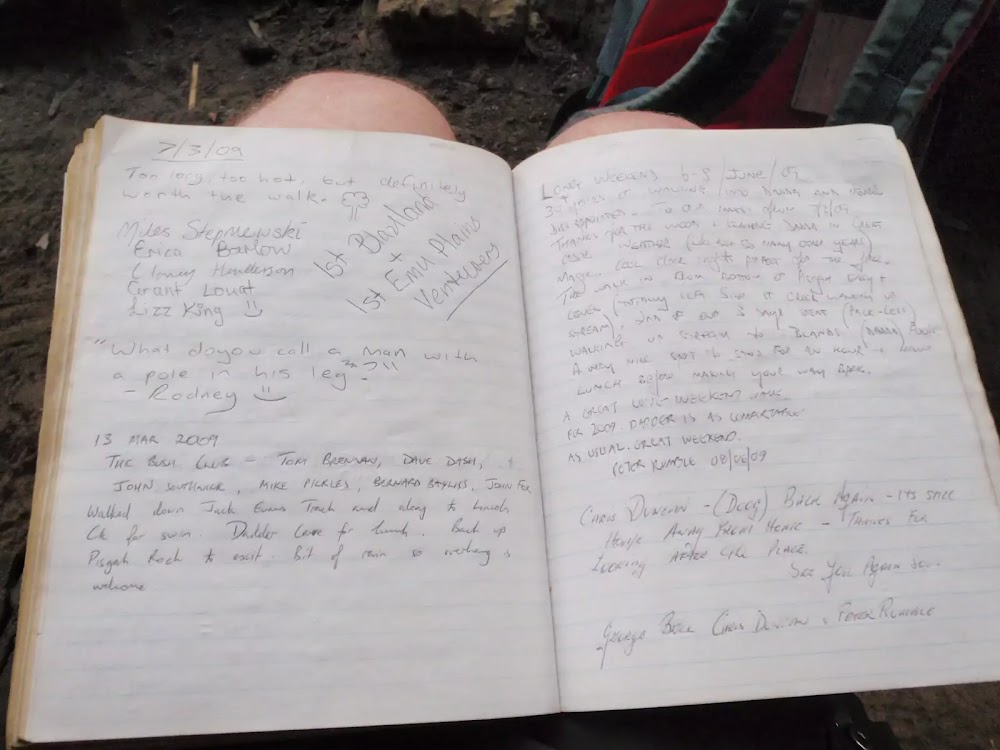 7/3/09
Too long, too hot, but definitely
worth the walk.
Miles
Erica Barlow
Henderson
Grant
Lizz King
1st Blaxland
+
1st Emu Plains
Venturers
"What do you call a man with
a pole in his leg
- Rodney
13 MAR 2009
THE BUSH CLUB - TOM BRENNAN, DAVE DASH,
JOHN SOUTHWICK, MIKE PICKLES, BERNARD BAYLISS, JOHN FOX
Walked down Jack Evans Track and along to
Ck for swim. Dadder Cave for lunch. Back up
Pisgah Rock to exit. Bit of rain so overhang is
welcome
LONG WEEKEND 6-8 JUNE/09
OF WALKING INTO DADDER AND NEVER
DISAPPOINTED - TO OUR
THANKS FOR THE WOOD & LEAVING DADDER IN GREAT
WEATHER (WE HAVE SO MANY OTHER YEARS)
MAGIC. COOL CLEAR NIGHTS PERFECT FOR THE FIRE.
THE WALK IN FROM BOTTOM OF PISGAH
LEFT SIDE OF CREEK WALKING UP
STREAM), 2ND OF OUR 3 DAYS WENT (PACK-LESS)
WALKING UP STREAM TO
A VERY NICE SPOT TO STOP FOR AN HOUR & HAVE
LUNCH BEFORE MAKING YOUR WAY BACK.
A GREAT LONG WEEKEND
FOR 2009. DADDER IS AS COMFORTABLE
AS USUAL. GREAT WEEKEND.
PETER RUMBLE 08/06/09
CHRIS DUNCAN - (DOOG) BACK AGAIN - ITS STILL
HOME AWAY FROM HOME - THANKS FOR
LOOKING AFTER THE PLACE.
SEE YOU AGAIN SOON.
- GEORGE BACK CHRIS DUNCAN & PETER RUMBLE